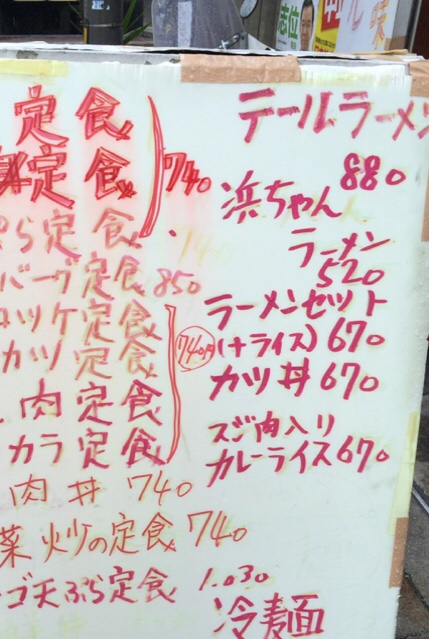 志位
定食
定食
740
ぷら定食
バーグ定食 850
ロッケ定食
カツ定食
740円
肉定食
カラ定食
肉丼 740
菜炒の定食 740
ゴ天ぷら定食 1.030
テールラーメン
880
浜ちゃん
ラーメン
520
ラーメンセット
(+ライス) 670
カツ丼 670
スジ肉入り
カレーライス 670
冷麺